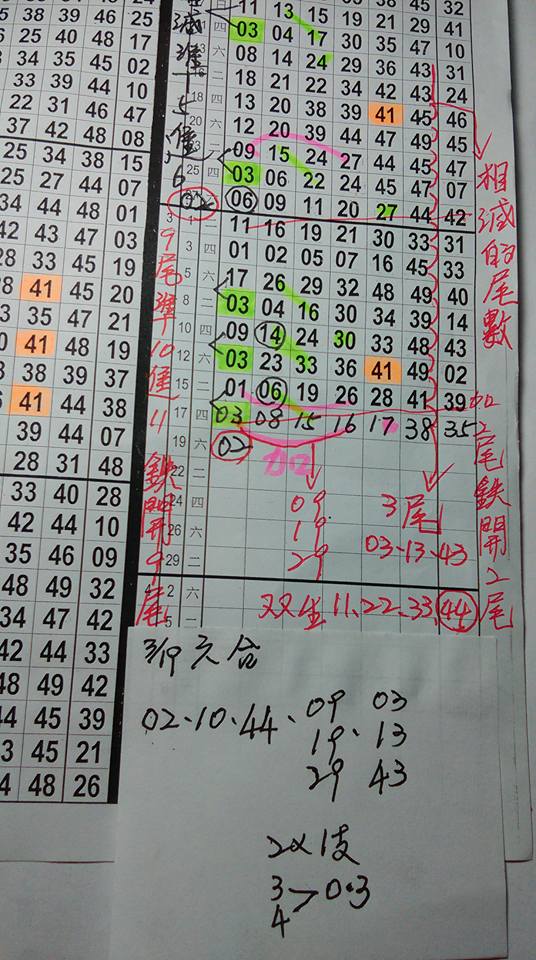 38 39 46 25
25 40 48 17
34 35 45 02
33 39 44 10
22 31 46 47
37 42 48 08
25 34 38 15
25 27 44 07
34 44 48 01
42 43 47 03
33 45 19
41 45 20
35 47 21
41 48 19
38 39 37
41 44 38
39 44 07
28 31 48
33 40 28
42 44 10
35 46 09
48 49 32
34 47 42
42 44 33
48 49 42
44 45 39
45 21
48 26
11 13 15 19 21 45 32
四 03 04 17 30 35 47 10
08 14 24 29 36 43 31
18 21 22 34 42 43 24
13 20 38 39 41 45 46
12 20 39 44 47 49 45
09 15 24 27 44 45 47
25 四 03 06 22 24 45 47 07
06 09 11 20 27 44 42
11 16 19 21 30 33 31
四 01 02 05 07 16 45 33
六 17 26 29 32 48 49 40
8 二 03 04 16 30 34 39 14
10 四 09 14 24 30 33 48 43
12 六 03 23 33 36 41 49 02
15 二 01 06 19 26 28 41 39
17 四 03 08 15 16 17 38 35
19 六 02
22 二
24 四
26 六
29 二
加
09
19
29
3尾
03-13-43
双生 11、22、33、44
相減的尾數
加2尾鉄開2尾
9尾準10進11鉄開9尾
3/19六合
02、10、44、09 03
19、13
29 43
2x1支
3
4 > 0.3